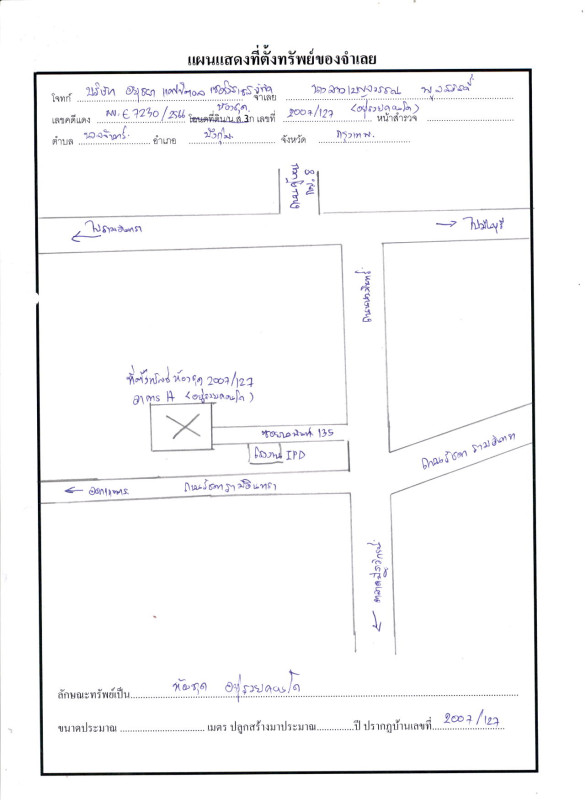 แผนแสดงที่ตั้งทรัพย์ของจำเลย
โจทก์ บริษัท อยุธยา แคปปิตอล เซอร์วิสเซส จำกัด จำเลย นางสาว
ห้องชุด
เลขคดีแดง ผบ.E 7230/2566 โฉนดที่ดิน/น.ส.3ก เลขที่ 2007/127 (อยู่รวยคอนโด) หน้าสำรวจ
ตำบล นวลจันทร์ อำเภอ บึงกุ่ม จังหวัด กรุงเทพฯ
ไปรามอินทรา
ไปมีนบุรี
ถนนนวลจันทร์
ที่ตั้งทรัพย์ ห้องชุด 2007/127
อาคาร A (อยู่รวยคอนโด)
135
IPD
ถนนรัชดา รามอินทรา
ถนนรัชดา รามอินทรา
ลักษณะทรัพย์เป็น ห้องชุด อยู่รวยคอนโด
ขนาดประมาณ เมตร ปลูกสร้างมาประมาณ ปี ปรากฏบ้านเลขที่ 2007/127